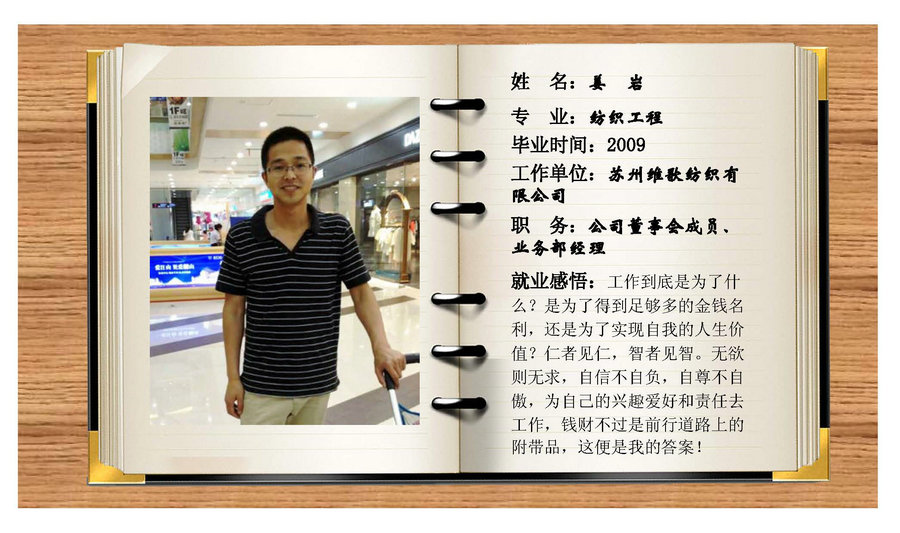 1F
姓　名：姜　岩
专　业：纺织工程
毕业时间：2009
工作单位：苏州维歌纺织有
限公司
职　务：公司董事会成员、
业务部经理
就业感悟：工作到底是为了什
么？是为了得到足够多的金钱名
利，还是为了实现自我的人生价
值？仁者见仁，智者见智。无欲
则无求，自信不自负，自尊不自
傲，为自己的兴趣爱好和责任去
工作，钱财不过是前行道路上的
附带品，这便是我的答案！